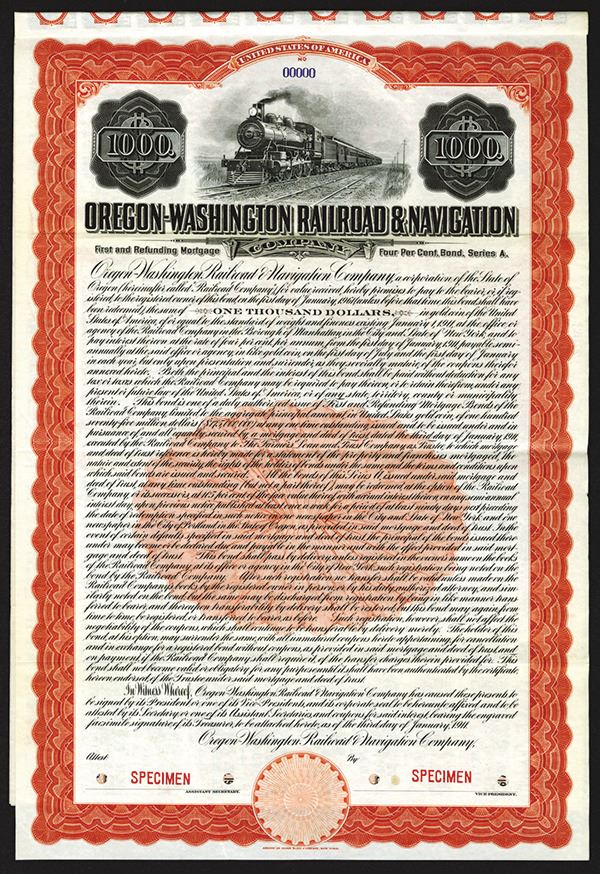 UNITED STATES OF AMERICA
NO
00000
1000. 1000.
OREGON-WASHINGTON RAILROAD & NAVIGATION
COMPANY
First and Refunding Mortgage Four Per Cent. Bond, Series A.
Oregon-Washington Railroad & Navigation Company, a corporation of the State of
Oregon (hereinafter called Railroad Company), for value received, hereby promises to pay to the bearer, or, if reg-
istered, to the registered owner of this bond, on the first day of January, 1961 (unless before that time this bond shall have
been redeemed), the sum of ONE THOUSAND DOLLARS, in gold coin of the United
States of America, of or equal to the standard of weight and fineness existing January 1, 1911, at the office or
agency of the Railroad Company in the Borough of Manhattan, in the City and State of New York, and to
pay interest thereon at the rate of four per cent. per annum, from the first day of January, 1911, payable semi-
annually at the said office or agency, in like gold coin, on the first day of July and the first day of January
in each year, but only upon presentation and surrender, as they severally mature, of the coupons therefor
annexed hereto. Both the principal and the interest of this bond shall be paid without deduction for any
tax or taxes which the Railroad Company may be required to pay thereon, or to retain therefrom, under any
present or future law of the United States of America, or of any state, territory, county or municipality
therein. This bond is one of a duly authorized issue of First and Refunding Mortgage Bonds of the
Railroad Company, limited to the aggregate principal amount in United States gold coin, of one hundred
seventy-five million dollars at any one time outstanding, issued and to be issued under and in
pursuance of, and all equally secured by, a mortgage and deed of trust dated the third day of January, 1911,
executed by the Railroad Company to The Farmers' Loan and Trust Company, as Trustee, to which mortgage
and deed of trust reference is hereby made for a statement of the property and franchises mortgaged, the
nature and extent of the security, the rights of the holders of bonds under the same and the terms and conditions upon
which said bonds are issued and secured. All the bonds of this Series A issued under said mortgage and
deed of trust, at any time outstanding (but not a part thereof), may be redeemed, at the option of the Railroad
Company, or its successors, at 105 per cent. of the face value thereof, with accrued interest thereon, on any semi-annual
interest day, upon previous notice published at least twice a week for a period of at least ninety days next preceding
the date of redemption specified in such notice, in one newspaper in the City and State of New York and one
newspaper in the City of Portland in the State of Oregon, as provided in said mortgage and deed of trust. In the
event of certain defaults specified in said mortgage and deed of trust, the principal of the bonds issued there-
under may become or be declared due and payable in the manner and with the effect provided in said mort-
gage and deed of trust. This bond shall pass by delivery unless registered in the owner's name on the books
of the Railroad Company at its office or agency in the City of New York, such registration being noted on the
bond by the Railroad Company. After such registration no transfer shall be valid unless made on the
Railroad Company's books by the registered owner in person, or by his duly authorized attorney, and sim-
ilarly noted on the bond; but the same may be discharged from registration by being in like manner trans-
ferred to bearer, and thereupon transferability by delivery shall be restored; and this bond may again, from
time to time, be registered, or transferred to bearer, as before. Such registration, however, shall not affect the
negotiability of the coupons, which shall continue to be transferable by delivery merely. The holder of this
bond, at his option, may surrender the same, with all unmatured coupons hereto appertaining, for cancellation
and in exchange for a registered bond without coupons, as provided in said mortgage and deed of trust, and
on payment, if the Railroad Company shall require it, of the transfer charges therein provided for. This
bond shall not become valid or obligatory for any purpose until it shall have been authenticated by the certificate
hereon endorsed, of the Trustee under said mortgage and deed of trust.
In Witness Whereof, Oregon-Washington Railroad & Navigation Company has caused these presents to
be signed by its President or one of its Vice-Presidents, and its corporate seal to be hereunto affixed and to be
attested by its Secretary or one of its Assistant Secretaries, and coupons for said interest, bearing the engraved
facsimile signature of its Treasurer, to be attached hereto, as of the third day of January, 1911.
Oregon-Washington Railroad & Navigation Company,
Attest By
SPECIMEN SPECIMEN
ASSISTANT SECRETARY. VICE-PRESIDENT.